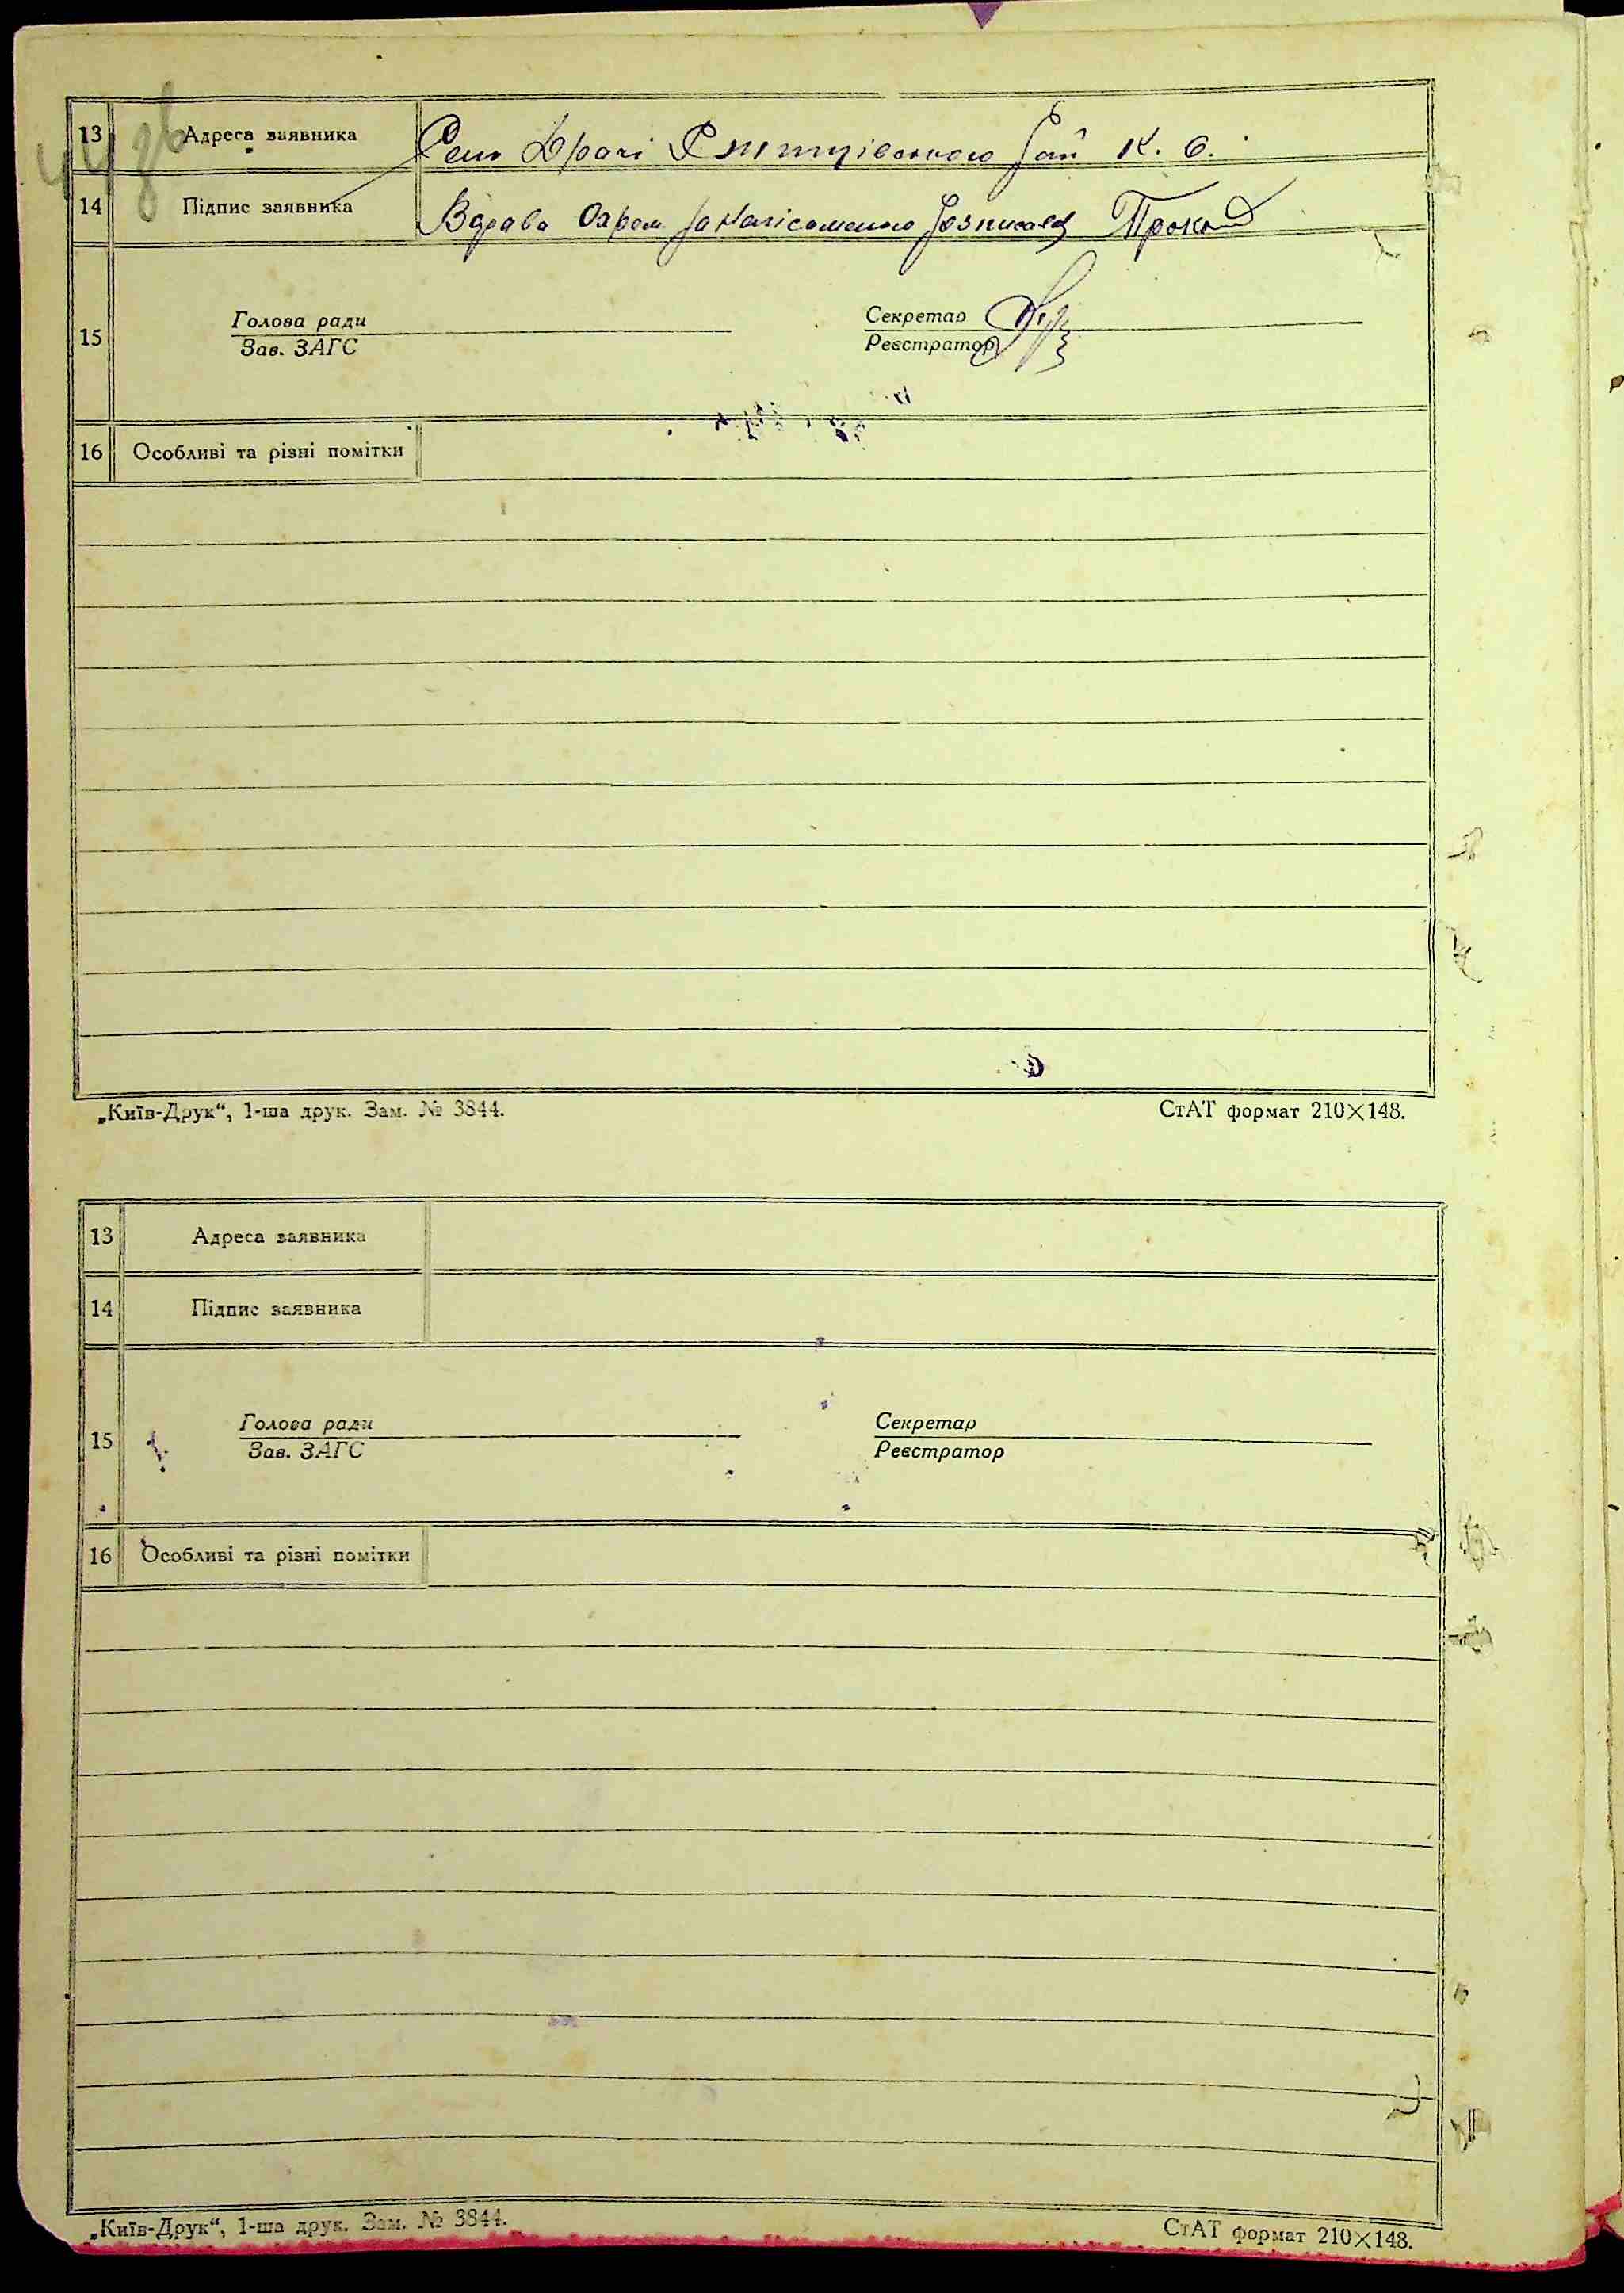 44 зв
13 Адреса заявника Село Драчі Ржищівського Рай К. О.
14 Підпис заявника Вдрава Охрем за нагісаменого Розписався
Голова ради Секретар
15
Зав. ЗАГС Реєстратор
16 Особливі та різні помітки
„Київ-Друк“, 1-ша друк. Зам. № 3844. СтАТ формат 210×148.
13 Адреса заявника
14 Підпис заявника
Голова ради Секретар
15
Зав. ЗАГС Реєстратор
16 Особливі та різні помітки
„Київ-Друк“, 1-ша друк. Зам. № 3844. СтАТ формат 210×148.